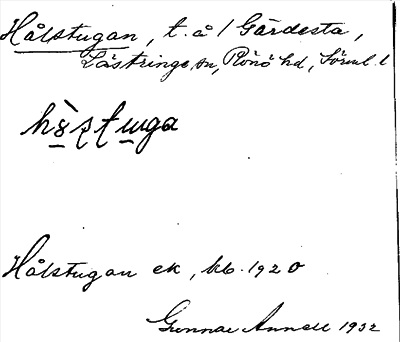 Hålstugan, t. å 1 Gärdesta,
Lästringe sn, Rönö hd, Sörml. l
Hålstugan ek, kb. 1920
Gunnar Annell 1932